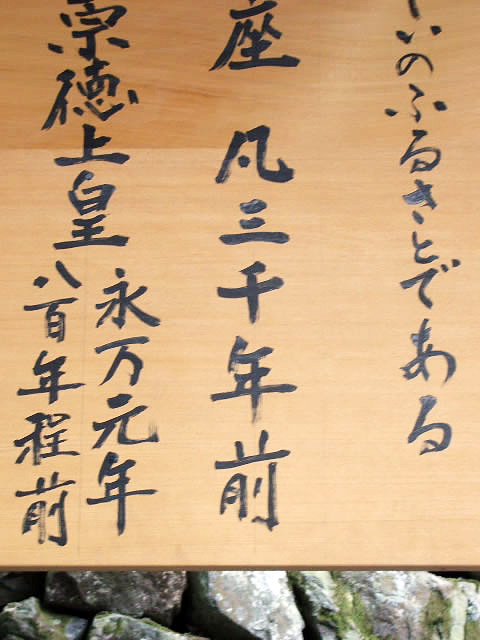 いのふるさとである
座 凡三千年前
崇徳上皇
永万元年
八百年程前